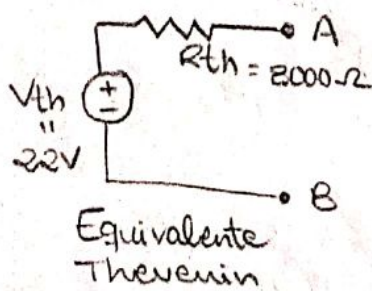 A
Rth = 2000Ω
Vth
+
-
"
22V
B
Equivalente
Thevenin